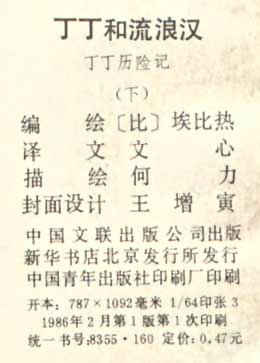 丁丁和流浪汉
丁丁历险记
(下)
编 绘〔比〕埃比热
译 文 文 心
描 绘 何 力
封面设计 王增寅
中国文联出版公司出版
新华书店北京发行所发行
中国青年出版社印刷厂印刷
开本:787×1092毫米 1/64印张3
1986年2月第1版第1次印刷
统一书号:8355·160 定价:0.47元